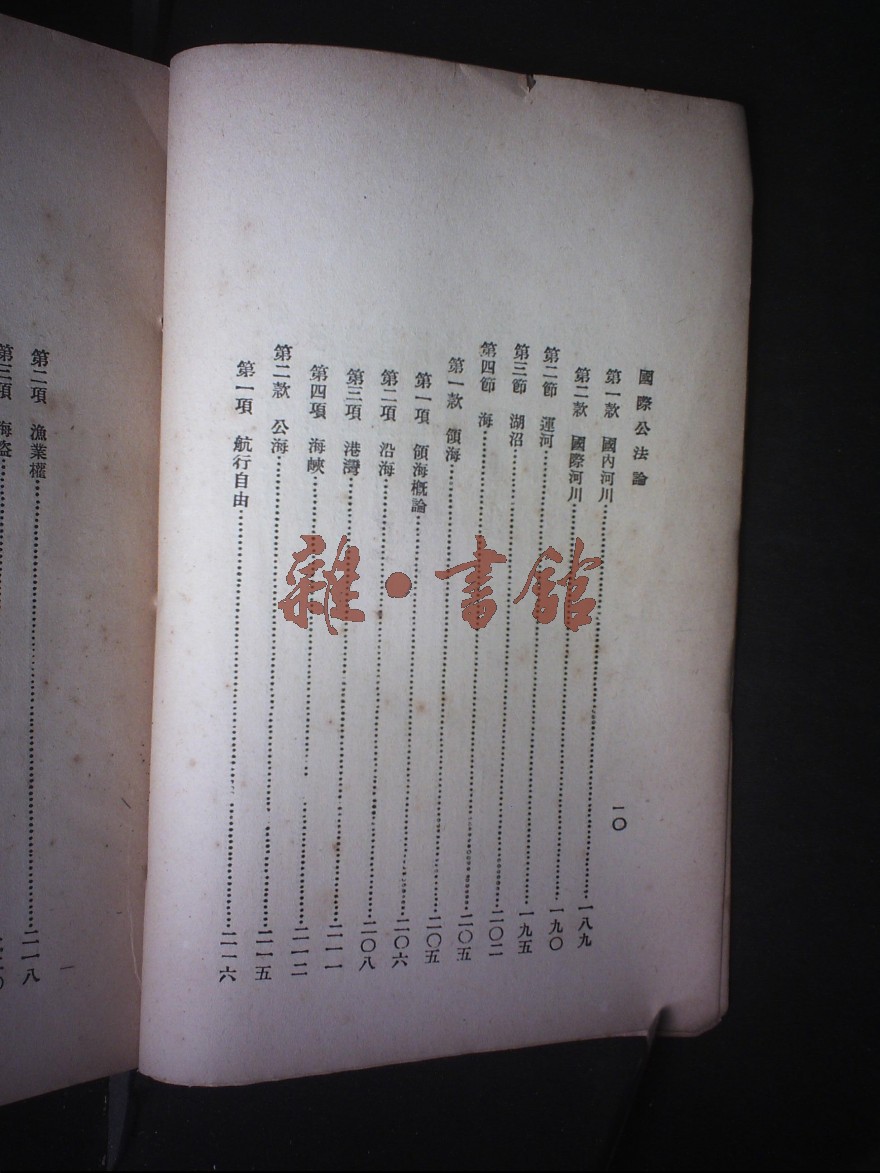 國際公法論
一〇
第一款 國內河川……一八九
第二款 國際河川……一九〇
第二節 運河……一九五
第三節 湖沼……二〇二
第四節 海……二〇五
第一款 領海……二〇五
第一項 領海概論……二〇六
第二項 沿海……二〇八
第三項 港灣……二一一
第四項 海峽……二一二
第二款 公海……二一五
第一項 航行自由……二一六
第二項 漁業權……二一八
第三項 海盜……
雜·書館